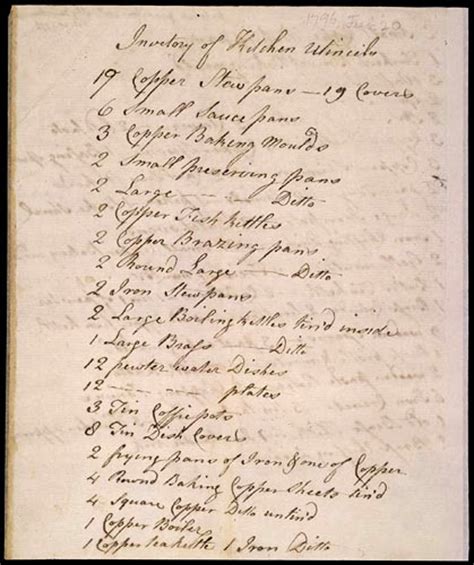 1796, June 20
Invetory of Kitchen Utincels
19 Copper Stewpans — 19 Covers
6 Small Sauce pans
3 Copper Baking Moulds
2 Small preserving pans
2 Large — — Ditto
2 Copper Fish kettles
2 Copper Brazing pans
2 Round Large — Ditto
2 Iron Stewpans
2 Large Boiling kettles tin'd inside
1 Large Brass Ditto
12 pewter water Dishes
12 — — — plates
3 Tin Coffie pots
8 Tin Dish Covers
2 frying pans of Iron & one of Copper
4 Round Baking Copper Sheets tin'd
4 Square Copper Ditto untin'd
1 Copper Boiler
1 Copper teakittle 1 Iron Ditto